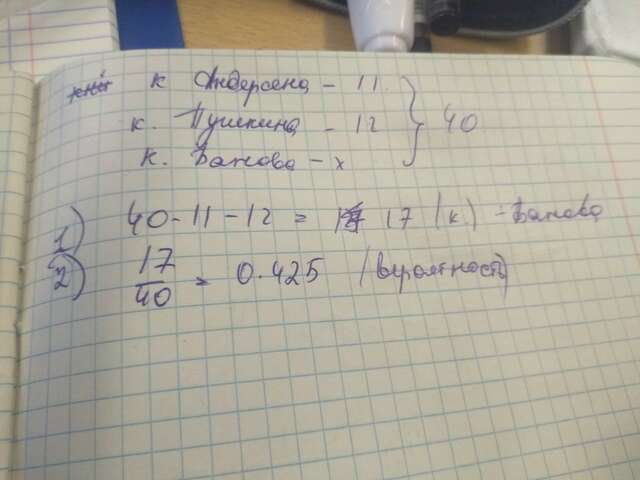 к Андерсена - 11
к. Пушкина - 12 } 40
к. Бажова - х
1) 40-11-12 = 17 (к) - Бажова
2) 17/40 = 0.425 (вероятность)